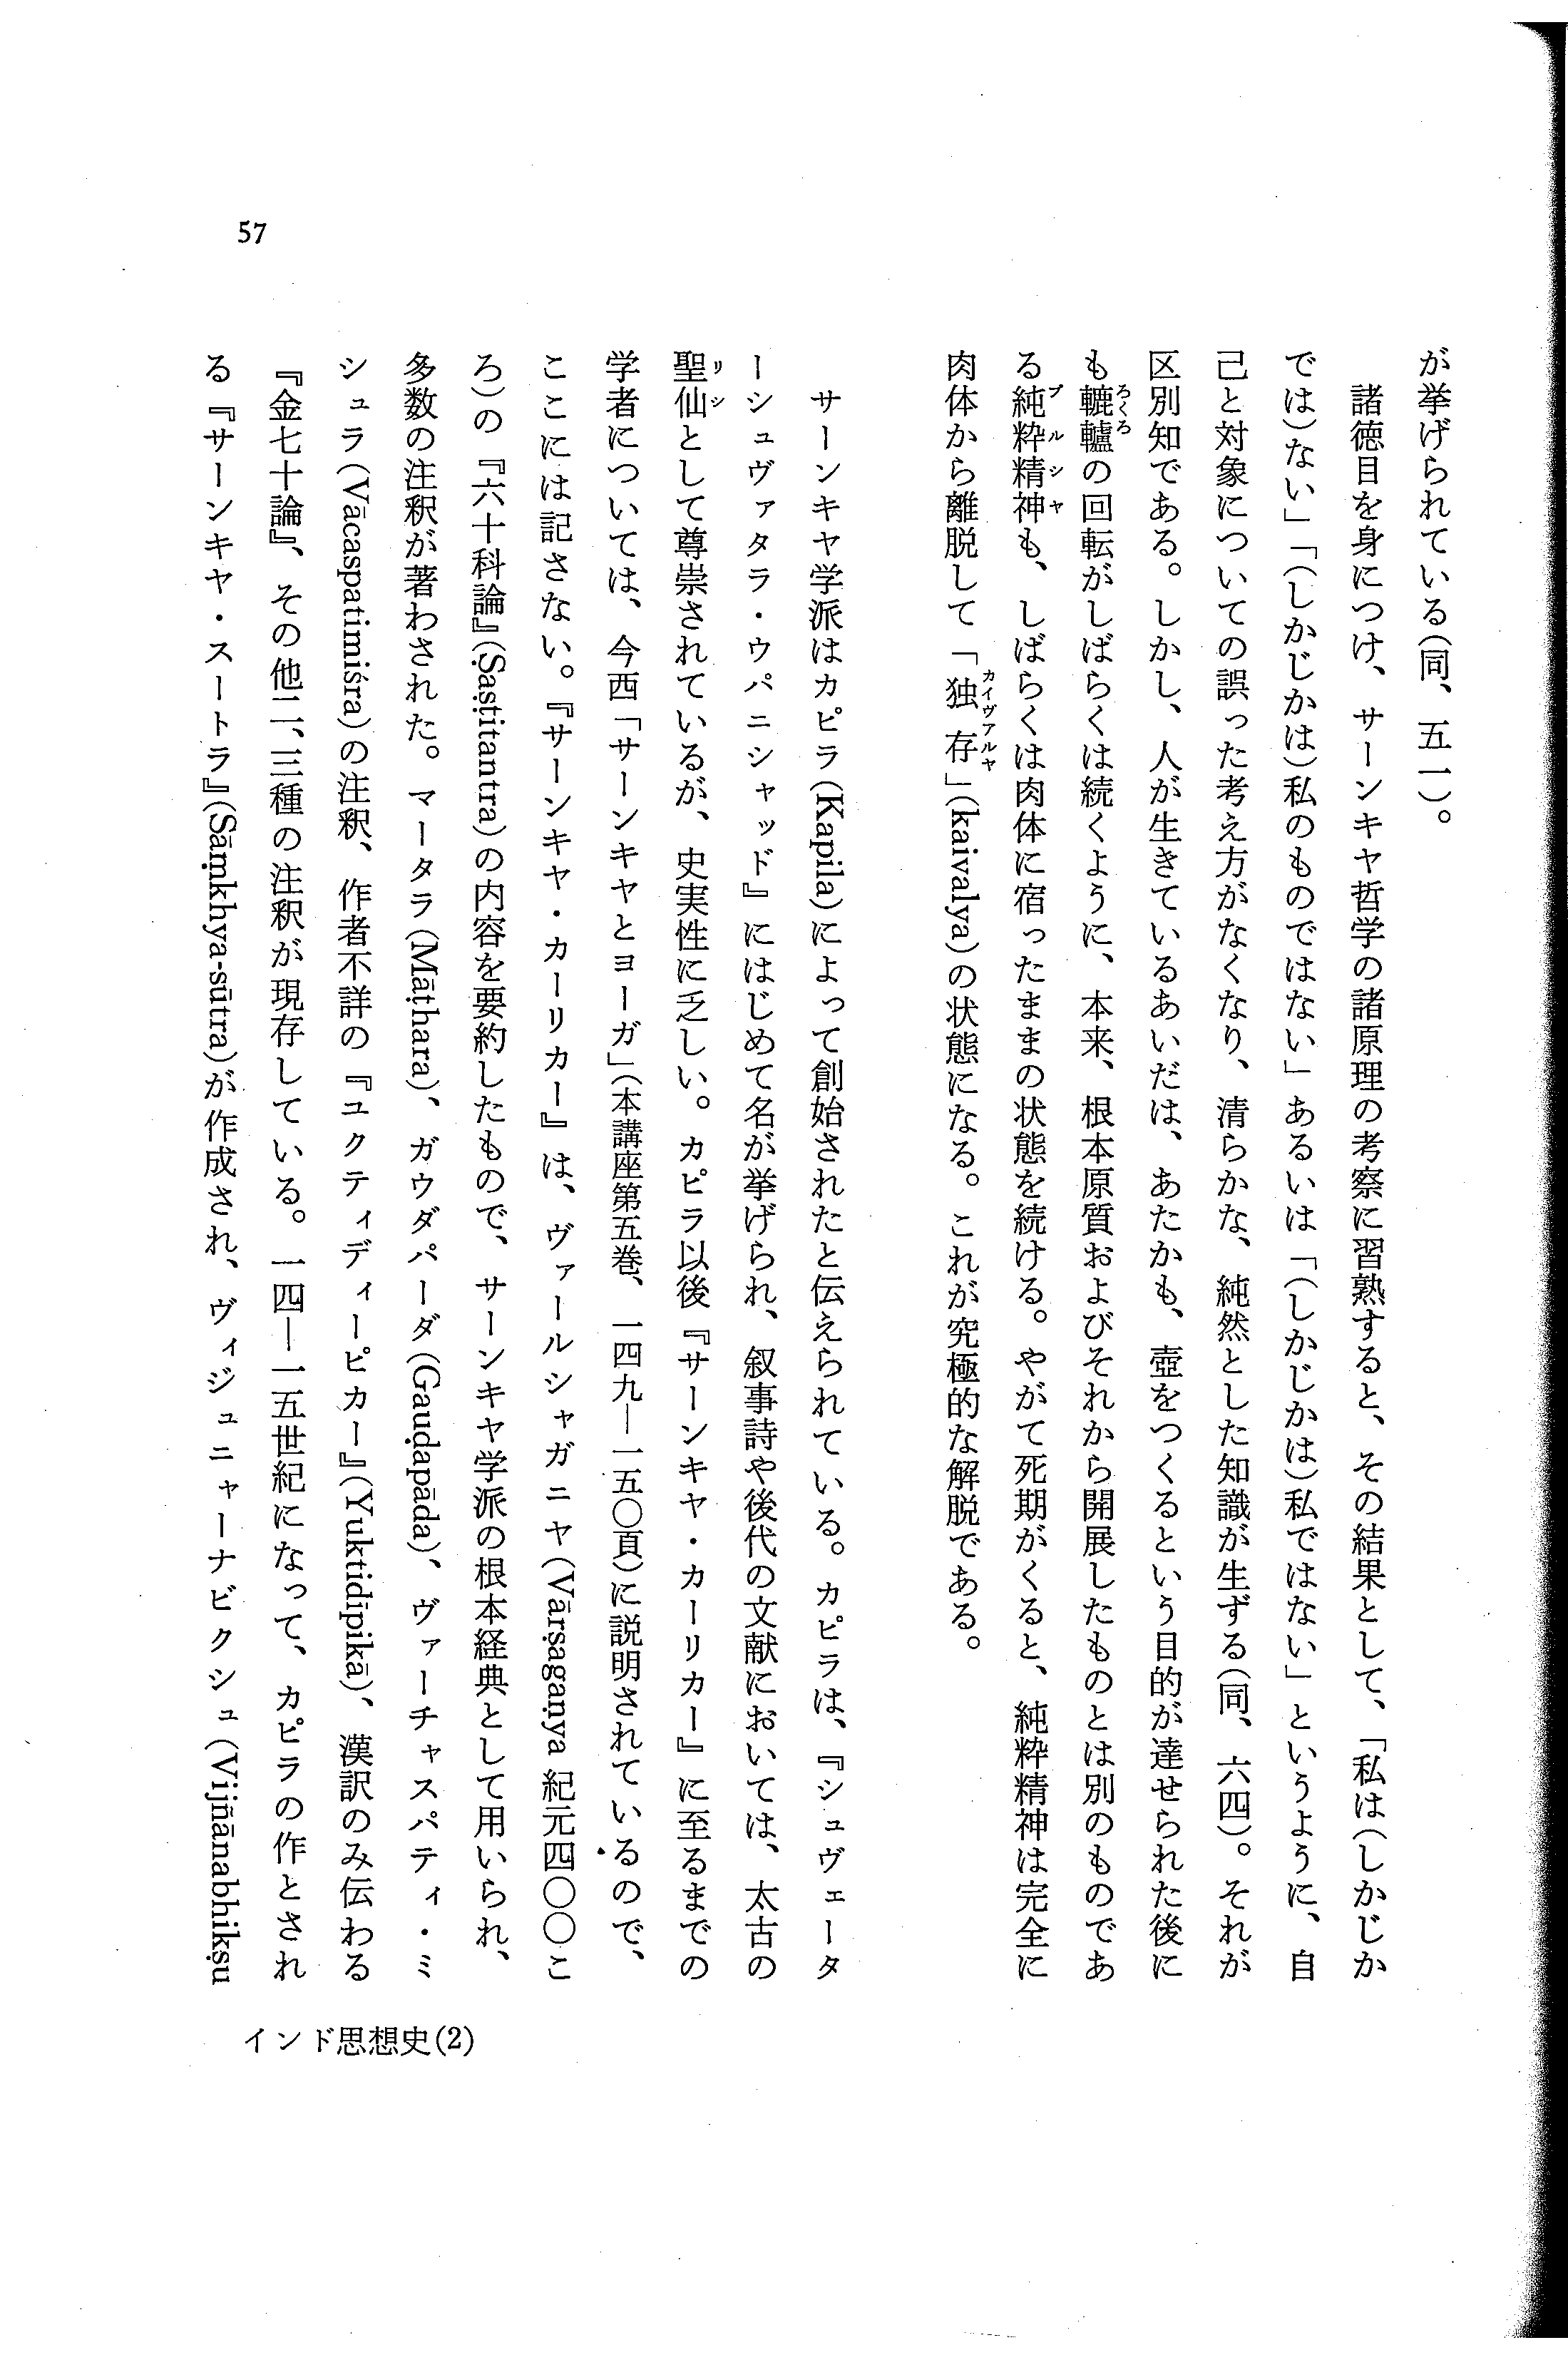 が挙げられている(同、五一)。
諸徳目を身につけ、サーンキヤ哲学の諸原理の考察に習熟すると、その結果として、「私は(しかじか
では)ない」「(しかじかは)私のものではない」あるいは「(しかじかは)私ではない」というように、自
己と対象についての誤った考え方がなくなり、清らかな、純然とした知識が生ずる(同、六四)。それが
区別知である。しかし、人が生きているあいだは、あたかも、壺をつくるという目的が達せられた後に
も轆轤の回転がしばらくは続くように、本来、根本原質およびそれから開展したものとは別のものであ
る純粋精神も、しばらくは肉体に宿ったままの状態を続ける。やがて死期がくると、純粋精神は完全に
肉体から離脱して「独存」(kaivalya)の状態になる。これが究極的な解脱である。
サーンキヤ学派はカピラ(Kapila)によって創始されたと伝えられている。カピラは、『シュヴェータ
ーシュヴァタラ・ウパニシャッド』にはじめて名が挙げられ、叙事詩や後代の文献においては、太古の
聖仙として尊崇されているが、史実性に乏しい。カピラ以後『サーンキヤ・カーリカー』に至るまでの
学者については、今西「サーンキヤとヨーガ」(本講座第五巻、一四九―一五〇頁)に説明されているので、
ここには記さない。『サーンキヤ・カーリカー』は、ヴァールシャガニヤ(Vārṣagaṇya 紀元四〇〇こ
ろ)の『六十科論』(Ṣaṣṭitantra)の内容を要約したもので、サーンキヤ学派の根本経典として用いられ、
多数の注釈が著わされた。マータラ(Māṭhara)、ガウダパーダ(Gauḍapāda)、ヴァーチャスパティ・ミ
シュラ(Vācaspatimiśra)の注釈、作者不詳の『ユクティディーピカー』(Yuktidīpikā)、漢訳のみ伝わる
『金七十論』、その他二、三種の注釈が現存している。一四―一五世紀になって、カピラの作とされ
る『サーンキヤ・スートラ』(Sāṃkhya-sūtra)が作成され、ヴィジュニャーナビクシュ(Vijñānabhikṣu
57
インド思想史(2)